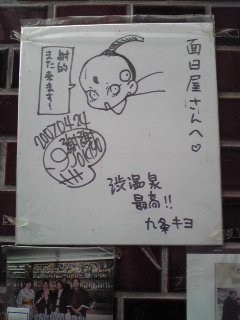 面白屋さんへ♡
射的
また来ます〜
2007.04.24
渋温泉
最高!!
九条キヨ